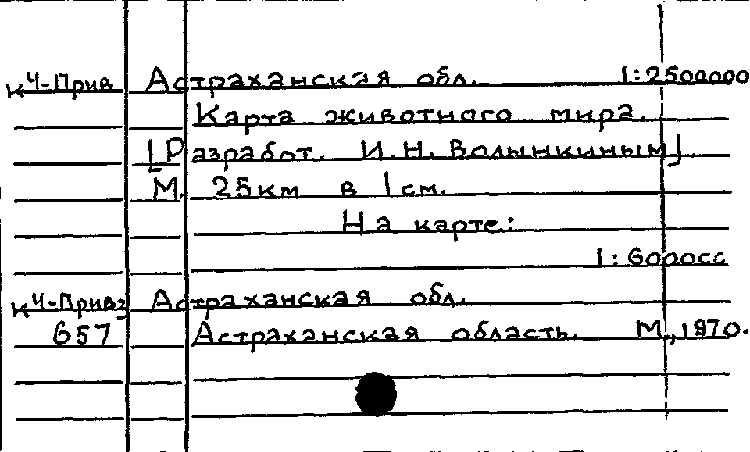 к Ч-Прив Астраханская обл. 1:2500000
Карта животного мира.
[Разработ. И.Н. Волынкиным].
М. 25км в 1см.
На карте:
1:600000
к Ч-Прив3 Астраханская обл.
657 Астраханская область. М., 1970.